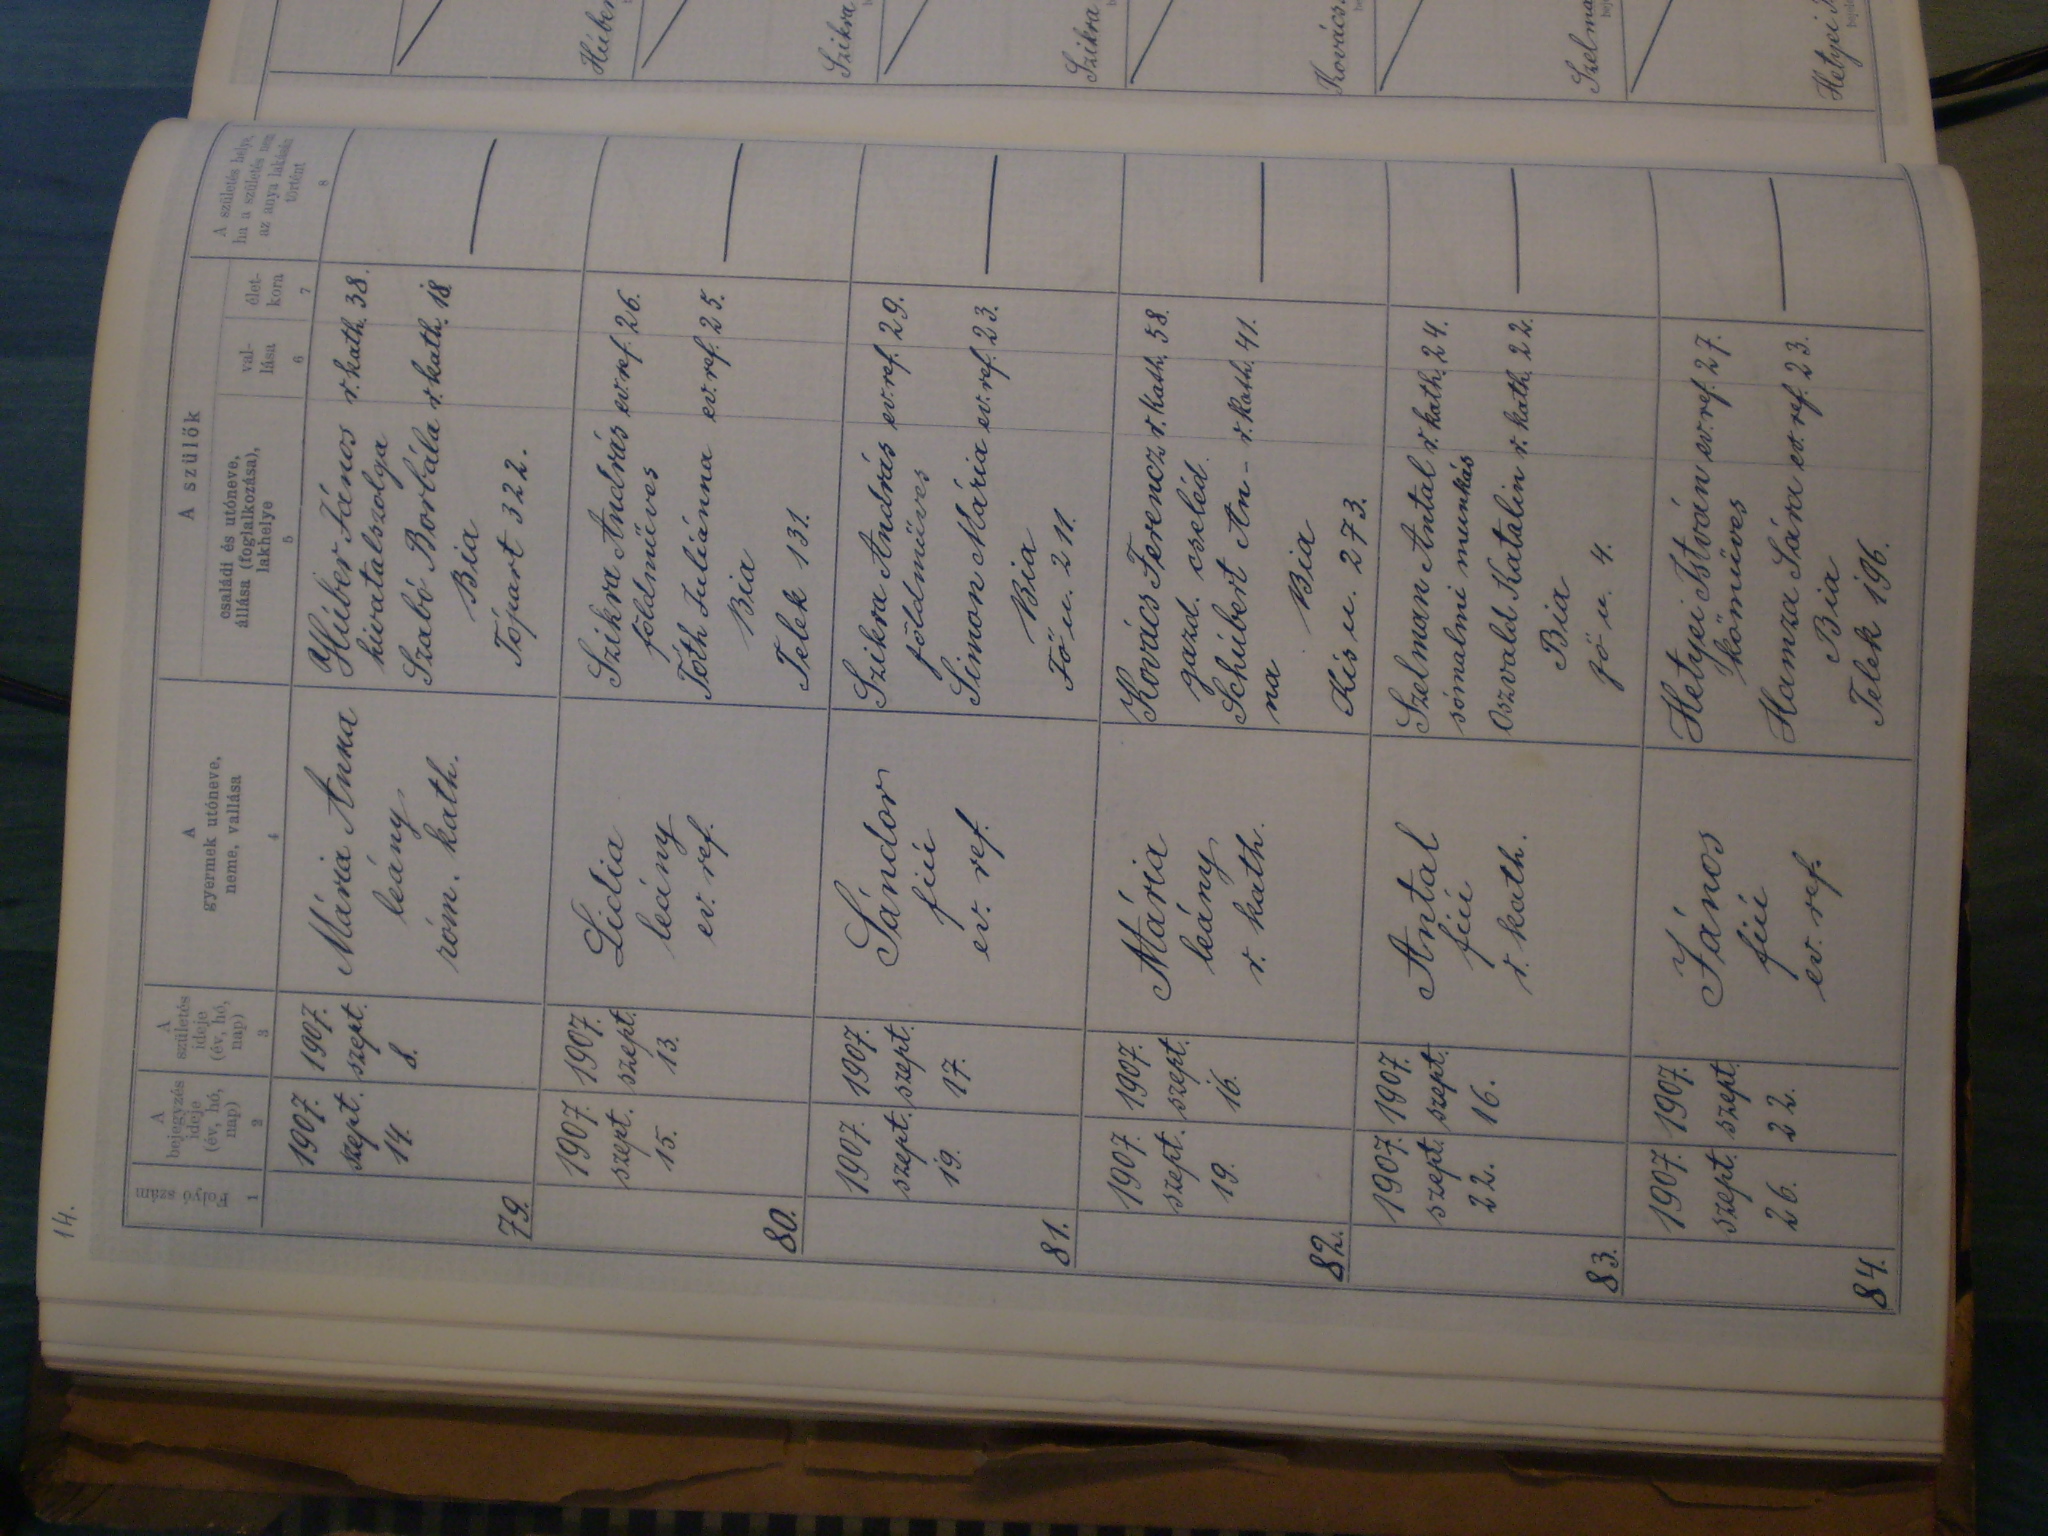 14.
Folyó szám
1
A bejegyzés ideje (év, hó, nap)
2
A születés ideje (év, hó, nap)
3
A gyermek utóneve, neme, vallása
4
A szülők
családi és utóneve, állása (foglalkozása), lakhelye
5
vallása
6
életkora
7
A születés helye, ha a születés nem az anya lakásán történt
8
79.
1907. szept. 14.
1907. szept. 8.
Mária Anna
leány
róm. kath.
Húber János r. kath. 38.
hivatalszolga
Szabó Borbála r. kath. 18
Bia
Tópart 322.
80.
1907. szept. 15.
1907. szept. 13.
Lidia
leány
ev. ref.
Szikra András ev. ref. 26.
földműves
Tóth Juliánna ev. ref. 25.
Bia
Telek 131.
81.
1907. szept. 19.
1907. szept. 17.
Sándor
fiú
ev. ref.
Szikra András ev. ref. 29.
földműves
Simon Mária ev. ref. 23.
Bia
Fő u. 211.
82.
1907. szept. 19.
1907. szept. 16.
Mária
leány
r. kath.
Kovács Ferencz r. kath. 58.
gazd. cseléd.
Schúbert An- r. kath. 41.
na Bia
Kis u. 273.
83.
1907. szept. 22.
1907. szept. 16.
Antal
fiú
r. kath.
Szelman Antal r. kath. 24.
munkás
Oszvald Katalin r. kath. 22.
Bia
Fő u. 4.
84.
1907. szept. 26.
1907. szept. 22.
János
fiú
ev. ref.
Hetyei István ev. ref. 27.
kőműves
Hamza Sára ev. ref. 23.
Bia
Telek 196.
Húber
Szikra
Szikra
Kovács
Szelma
Hetyei